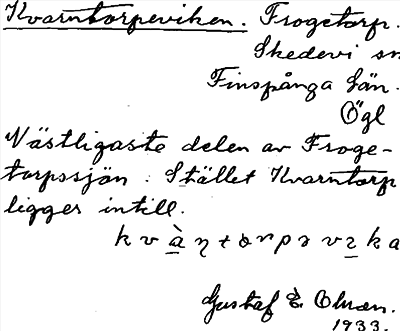 Kvarntorpeviken. Frogetorp.
Skedevi sn
Finspånga län.
Ögl
Västligaste delen av Froge-
torpssjön. Stället Kvarntorp
ligger intill.
k v à η t o r p ə v ɪ k a
Gustaf E.
1933.